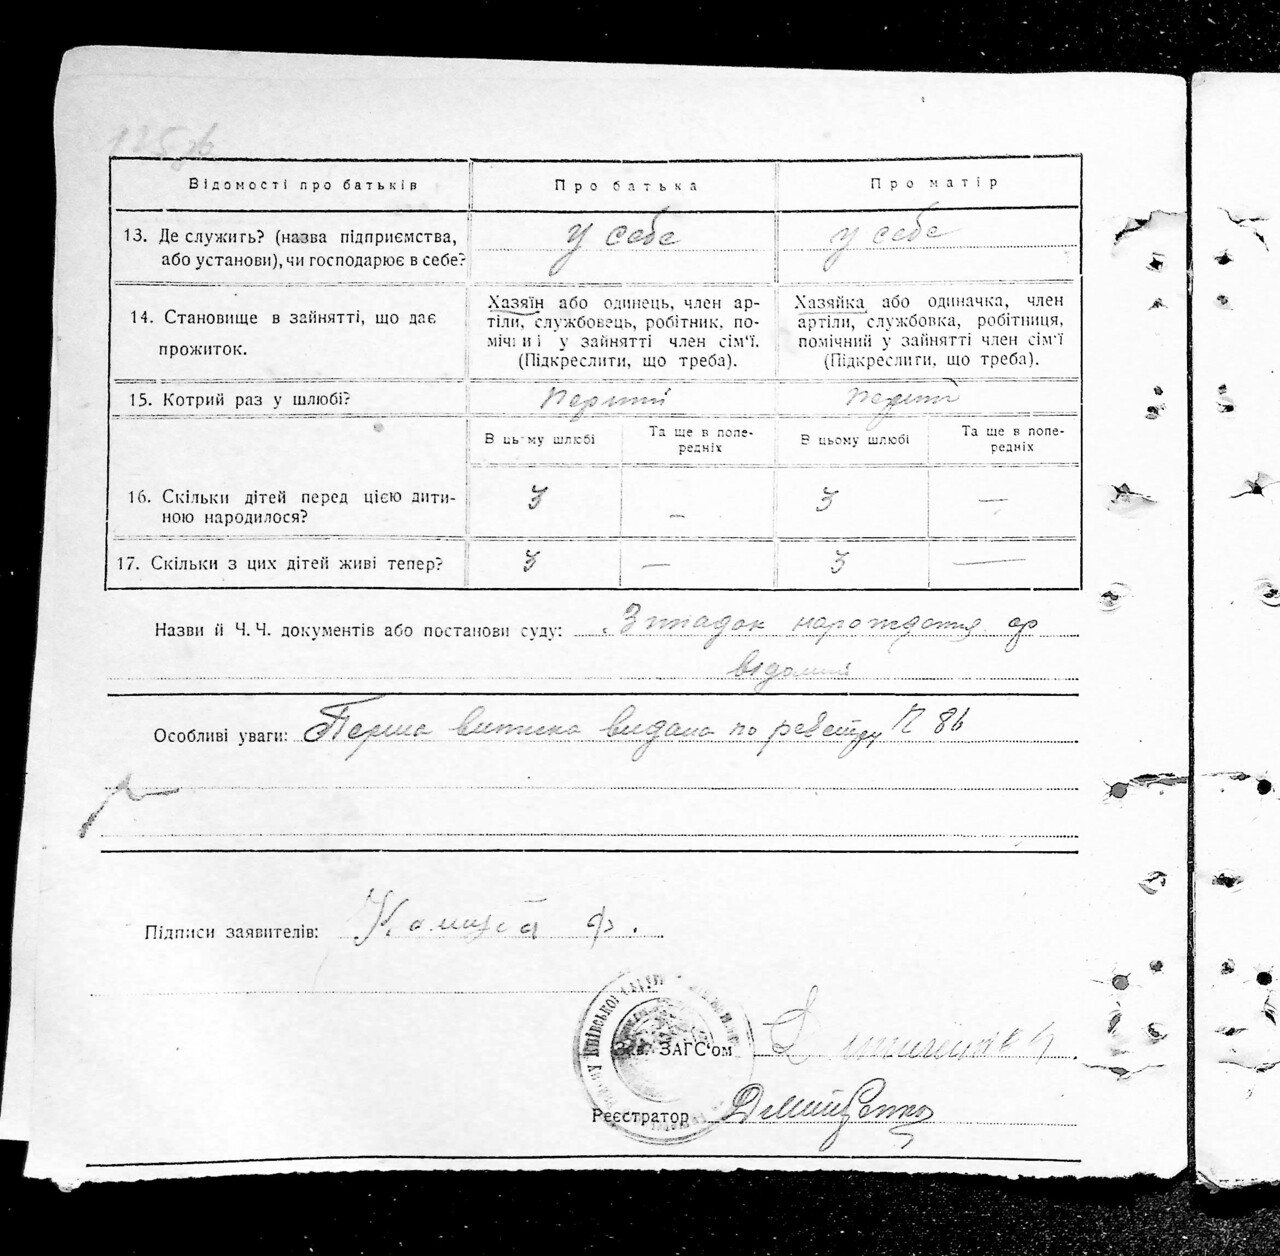 125зв
Відомості про батьків
Про батька
Про матір
13. Де служить? (назва підприємства,
або установи), чи господарює в себе?
у себе
у себе
14. Становище в зайнятті, що дає
прожиток.
Хазяїн або одинець, член ар-
тіли, службовець, робітник, по-
мічний у зайнятті член сім'ї.
(Підкреслити, що треба).
Хазяйка або одиначка, член
артіли, службовка, робітниця,
помічний у зайнятті член сім'ї
(Підкреслити, що треба).
15. Котрий раз у шлюбі?
перший
перший
В цьому шлюбі
Та ще в попе-
редніх
В цьому шлюбі
Та ще в попе-
редніх
16. Скільки дітей перед цією дити-
ною народилося?
3
—
3
—
17. Скільки з цих дітей живі тепер?
3
—
3
—
Назви й Ч. Ч. документів або постанови суду:
нарождення
відомий
Особливі уваги: Перша виписка видана по реєстру N 86
Підписи заявителів:
Київської
Зав. ЗАГС'ом
Реєстратор Дмитренко